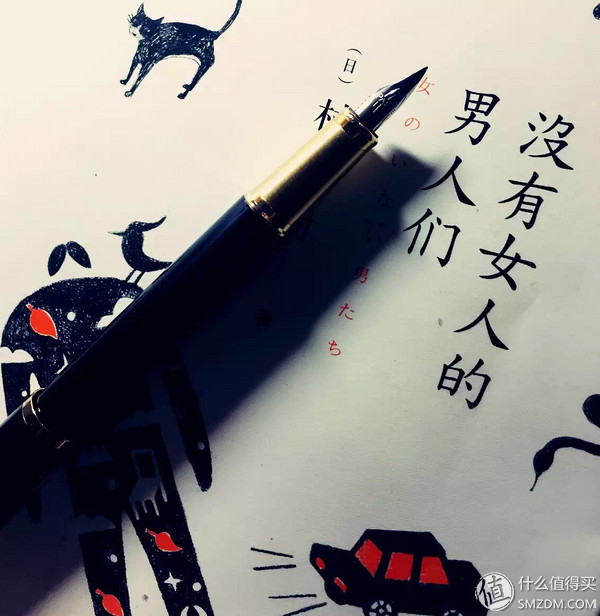 沒有女人的
男人们
女のいない男たち
（日）
村
什么值得买
SMZDM.COM
值